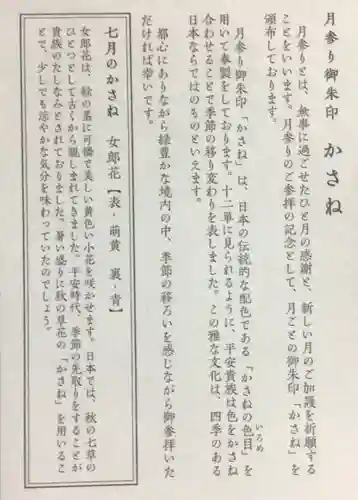 月参り御朱印　かさね
月参りとは、無事に過ごせたひと月の感謝と、新しい月のご加護を祈願する
ことをいいます。月参りのご参拝の記念として、月ごとの御朱印「かさね」を
頒布しております。
月参り御朱印「かさね」は、日本の伝統的な配色である「かさねの色目」を
いろめ
用いて奉製をしております。十二単に見られるように、平安貴族は色をかさね
合わせることで季節の移り変わりを表しました。この雅な文化は、四季のある
日本ならではのものといえます。
都心にありながら緑豊かな境内の中、季節の移ろいを感じながら御参拝いた
だければ幸いです。
七月のかさね　女郎花【表・萌黄　裏・青】
女郎花は、秋の墓に可憐で美しい黄色い小花を咲かせます。日本では、秋の七草の
ひとつとして古くから親しまれてきました。平安時代、季節の先取りをすることが
貴族のたしなみとされておりました。暑い盛りに秋の草花の「かさね」を用いるこ
とで、少しでも涼やかな気分を味わっていたのでしょう。